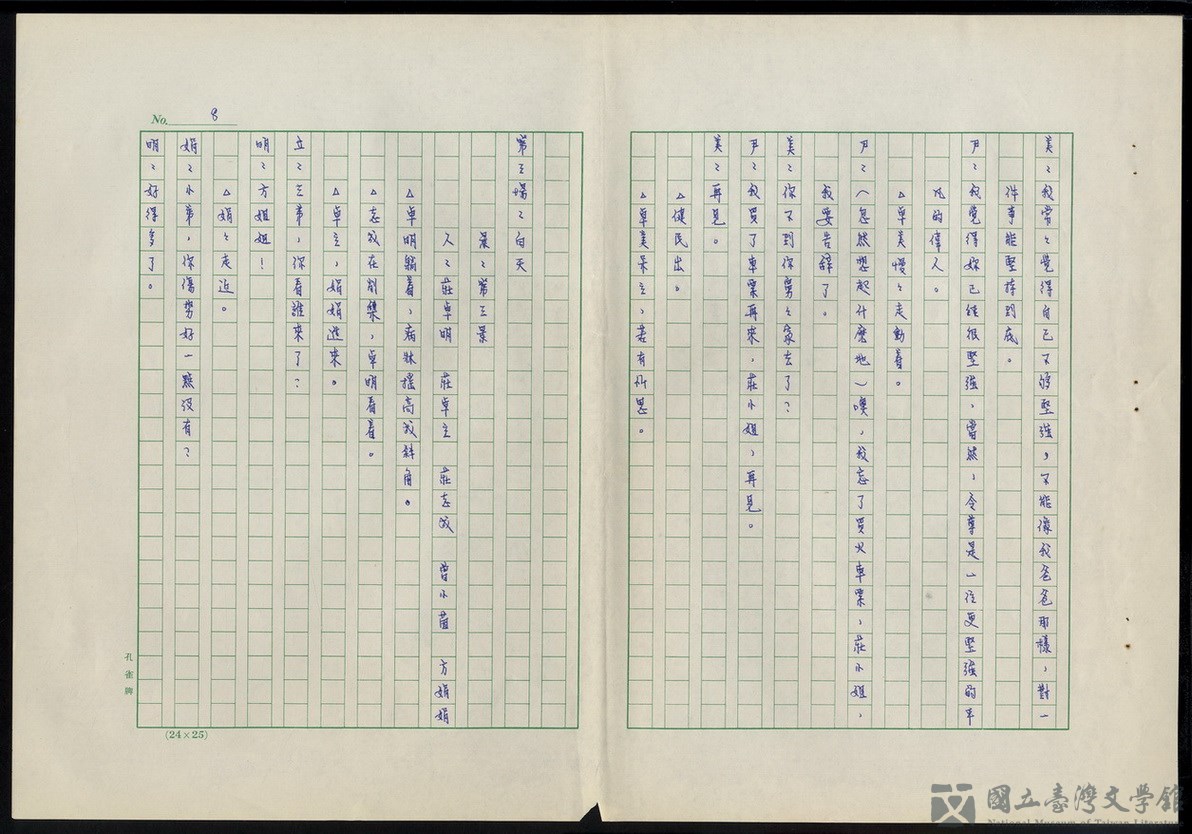 No. 8
美：我常々覺得自己不夠堅強，不能像我爸爸那樣，對一
件事能堅持到底。
尹：我覺得妳已經很堅強，當然，令尊是一位更堅強的平
凡的偉人。
△卓美慢々走動着。
尹：（忽然想起什麼地）噢，我忘了買火車票，莊小姐，
我要告辭了。
美：你不到你舅々家去了？
尹：我買了車票再來，莊小姐，再見。
美：再見。
△健民出。
△卓美呆立，若有所思。
第三場：白天
景：第三景
人：莊卓明 莊卓立 莊志成 曾小苗 方娟娟
△卓明躺着，病牀搖高成斜角。
△志成在削梨，卓明看着。
△卓立，娟娟進來。
立：三弟，你看誰來了？
明：方姐姐！
△娟々走近。
娟：小弟，你傷勢好一點沒有？
明：好得多了。
孔雀牌
(24×25)
國立臺灣文學館
National Museum of Taiwan Literature